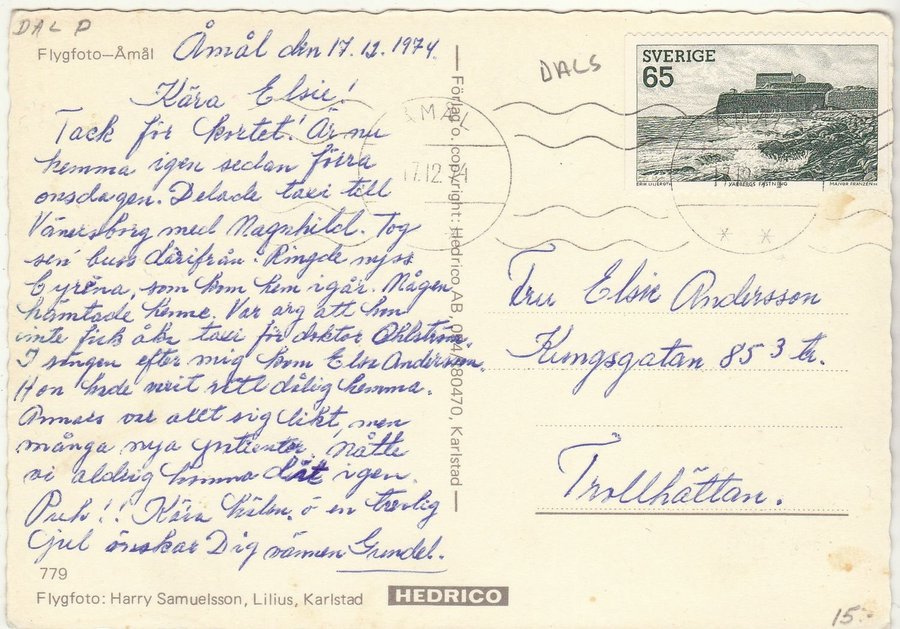 DAL P
Flygfoto–Åmål
Åmål den 17.12.1974.
Kära Elsie!
Tack för kortet! Är nu
hemma igen sedan förra
onsdagen. Delade taxi till
Vänersborg med Ragnhild. Tog
sen buss därifrån. Ringde nyss
Cyréna, som kom hem igår. Mågen
hämtade henne. Var arg att hon
inte fick åka taxi för doktor Ohlström.
I sängen efter mig kom Elsa Anderson.
Hon hade vrit rätt dålig hemma.
Annars var allt sig likt, men
många nya patienter. Måtte
vi aldrig komma dit igen.
Puh!! Kära häln. o en trevlig
Jul önskar Dig vännen Gundel.
779
Flygfoto: Harry Samuelsson, Lilius, Karlstad
HEDRICO
Förlag o. copyright: Hedrico AB, 054/180470, Karlstad
DALS
SVERIGE
65
VARBERGS FÄSTNING
MAJVOR FRANZÉN
ÅMÅL
17.12.74
Fru Elsie Andersson
Kungsgatan 85 3 tr.
Trollhättan.
15:-